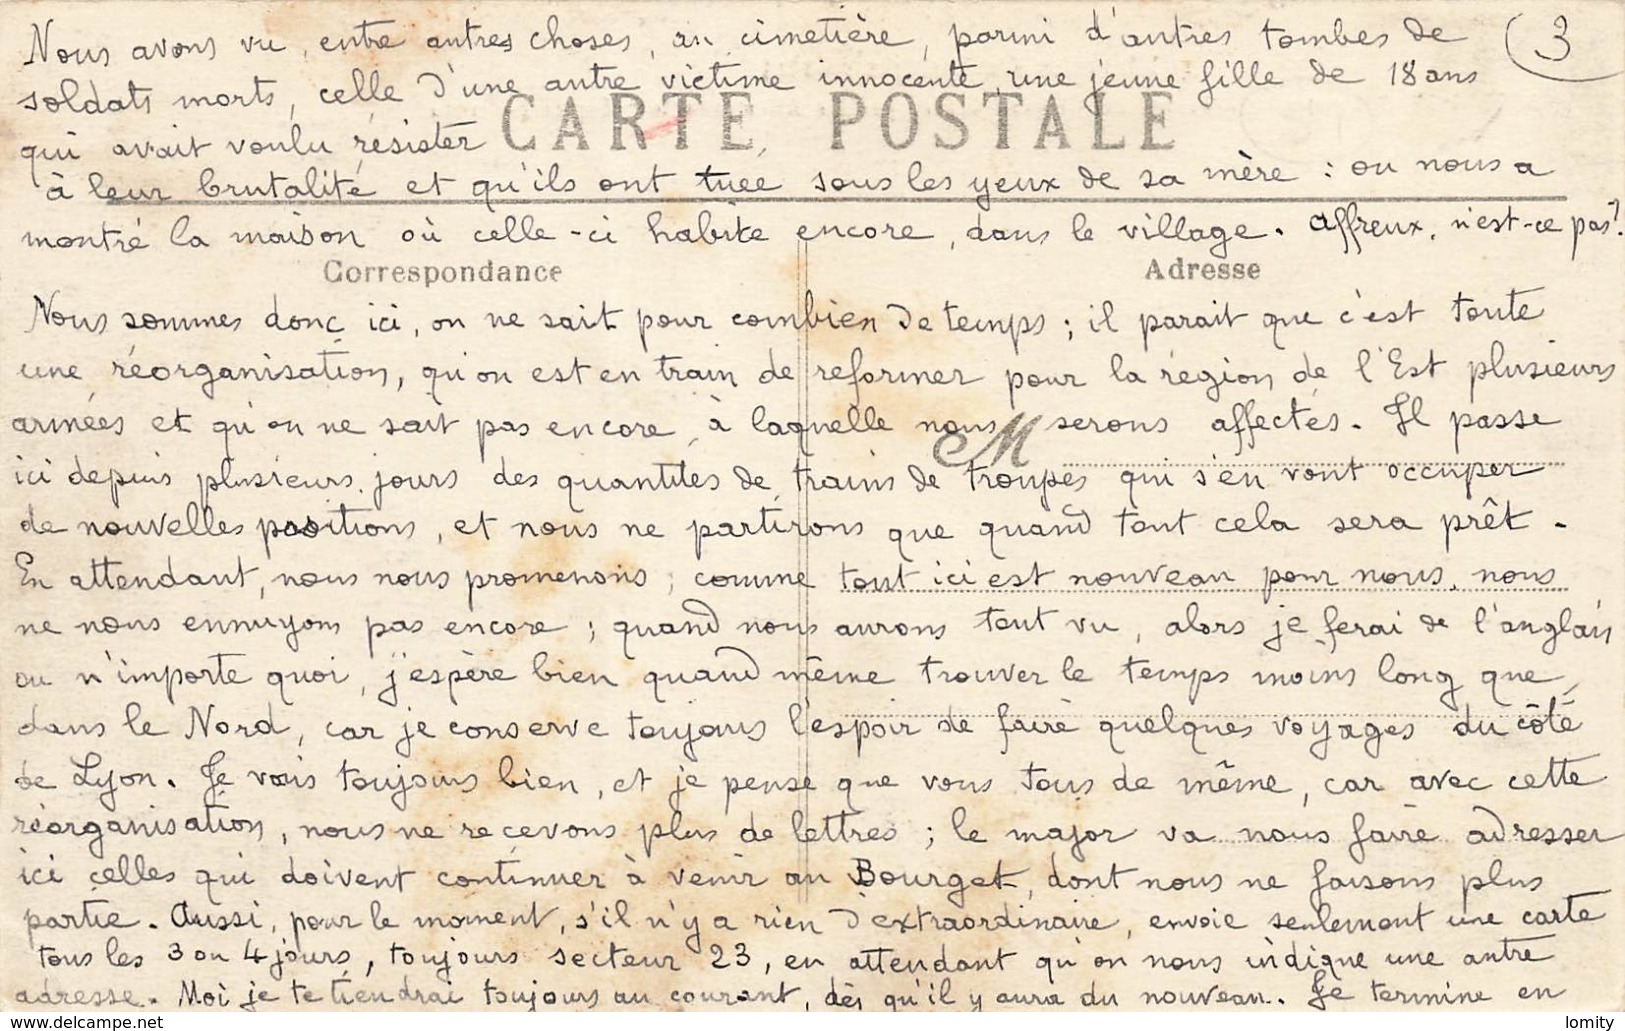 Nous avons vu, entre autres choses, au cimetière, parmi d'autres tombes de
3
soldats morts, celle d'une autre victime innocente, une jeune fille de 18 ans
CARTE POSTALE
qui avait voulu résister
à leur brutalité et qu'ils ont tuée sous les yeux de sa mère : on nous a
montré la maison où celle-ci habite encore, dans le village. Affreux, n'est-ce pas ?
Correspondance
Adresse
Nous sommes donc ici, on ne sait pour combien de temps ; il parait que c'est toute
une réorganisation, qu'on est en train de reformer pour la région de l'Est plusieurs
armées et qu'on ne sait pas encore à laquelle nous serons affectés. Il passe
M
ici depuis plusieurs jours des quantités de trains de troupes qui s'en vont occuper
de nouvelles positions, et nous ne partirons que quand tout cela sera prêt -
En attendant, nous nous promenons ; comme tout ici est nouveau pour nous, nous
ne nous ennuyons pas encore ; quand nous aurons tout vu, alors je ferai de l'anglais
ou n'importe quoi, j'espère bien quand même trouver le temps moins long que
dans le Nord, car je conserve toujours l'espoir de faire quelques voyages du côté
de Lyon. Je vais toujours bien, et je pense que vous tous de même, car avec cette
réorganisation, nous ne recevons plus de lettres ; le major va nous faire adresser
ici celles qui doivent continuer à venir au Bourget, dont nous ne faisons plus
partie. Aussi, pour le moment, s'il n'y a rien d'extraordinaire, envoie seulement une carte
tous les 3 ou 4 jours, toujours secteur 23, en attendant qu'on nous indique une autre
adresse. Moi je te tiendrai toujours au courant, dès qu'il y aura du nouveau. Je termine en
www.delcampe.net
lomity